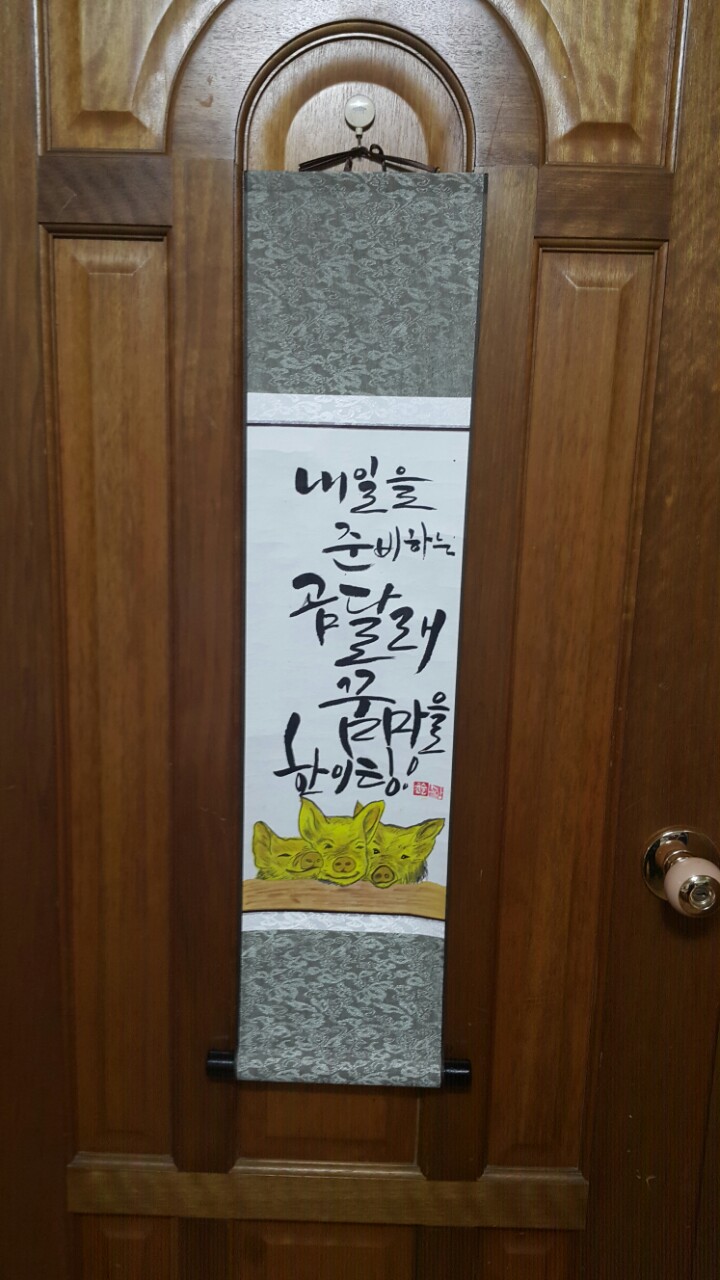 내일을
준비하는
곰달래
꿈마을
화이팅!